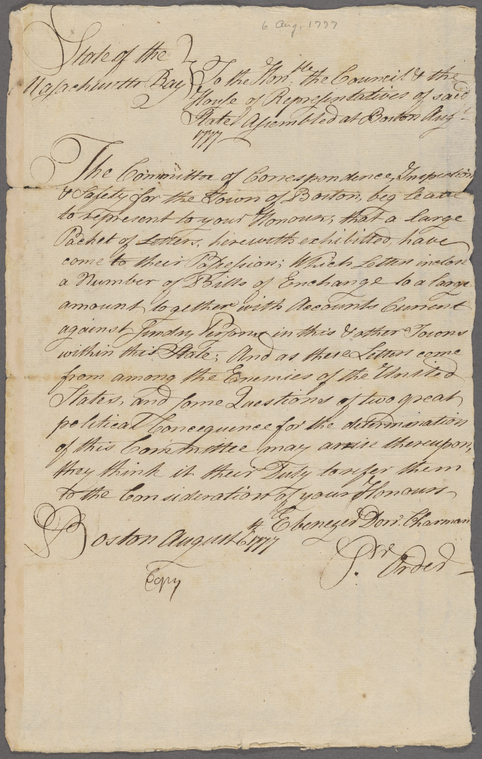 6 Aug. 1777
State of the
Massachusetts Bay } To the Hon.ble the Council & the
House of Representatives of said
State Assembled at Boston Aug.t
1777
The Committee of Correspondence, Inspection
& Safety for the Town of Boston, beg leave
to represent to your Honours, that a large
Packet of Letters, herewith exhibited, have
come to their Possession; Which Letters inclose
a Number of Bills of Exchange to a large
amount together with Accounts Current
against Sundry Persons in this & other Towns
within this State; And as these Letters come
from among the Enemies of the United
States, and some Questions of two great
political Consequence for the determination
of this Committee may arise thereupon,
they think it their Duty to refer them
to the Consideration of your Honours
Ebenezer Dorr Chairman
Boston August 6th 1777
Pr. Order
Copy